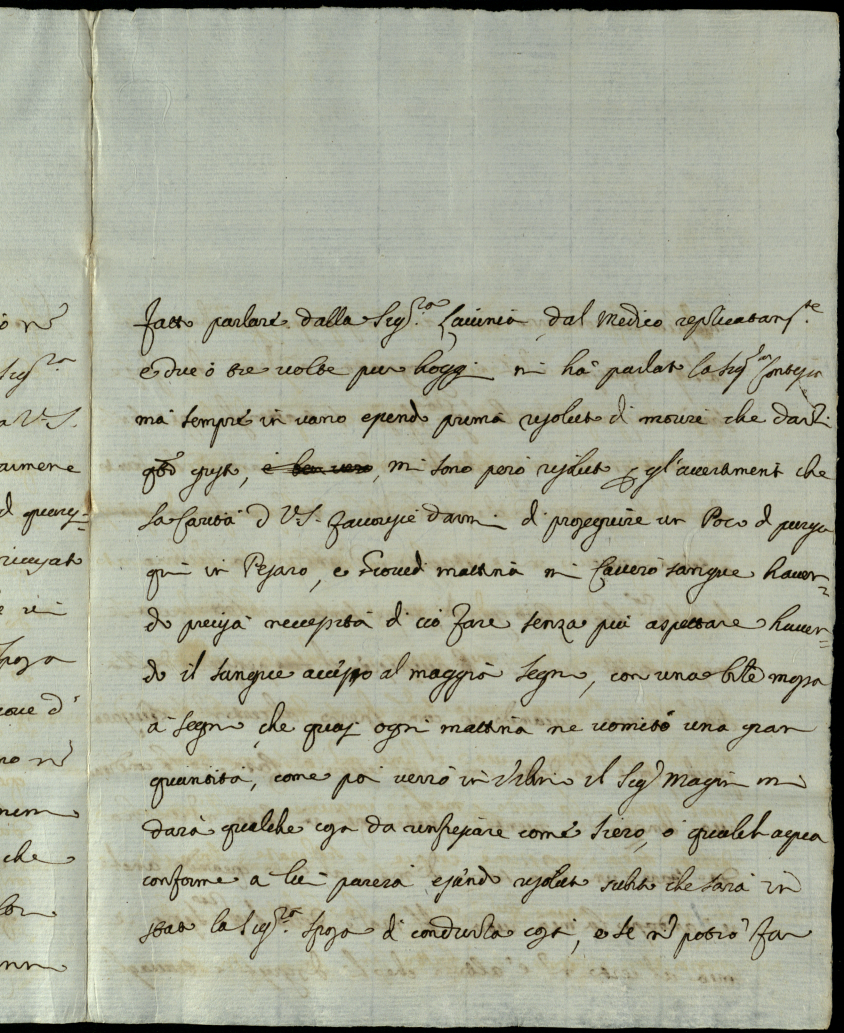 ò nõ
Sig.ra
a V.S.
armene
che
fatto parlare dalla Sig.ra Lavinia, dal Medico replicatam.te
e due ò tre volte pur hoggi mi hà parlato la Sig.ra Contessa
mà sempre in vano essendo prima resoluto di morire che darli
gusto, è ben vero, mi sono però resoluto gl'avertimenti che
la Carità di V.S. favorisce darmi di proseguire un Poco di purga
qui in Pesaro, e Giovedì mattina mi Caverò sangue haven=
do precisa necessità di ciò fare senza più aspettare haven=
do il sangue acceso al maggior segno, con una bile mossa
à segno che quasi ogni mattina ne vomitò una gran
quantità, come poi verrò in Urbino il Sig.r Magin mi
darà qualche cosa da rinfrescare come siero, ò qualch acqua
conforme a lui parerà essendo resoluto subito che sarà in
stato la Sig.ra Sposa di condurla costì, e se nõ potrò far